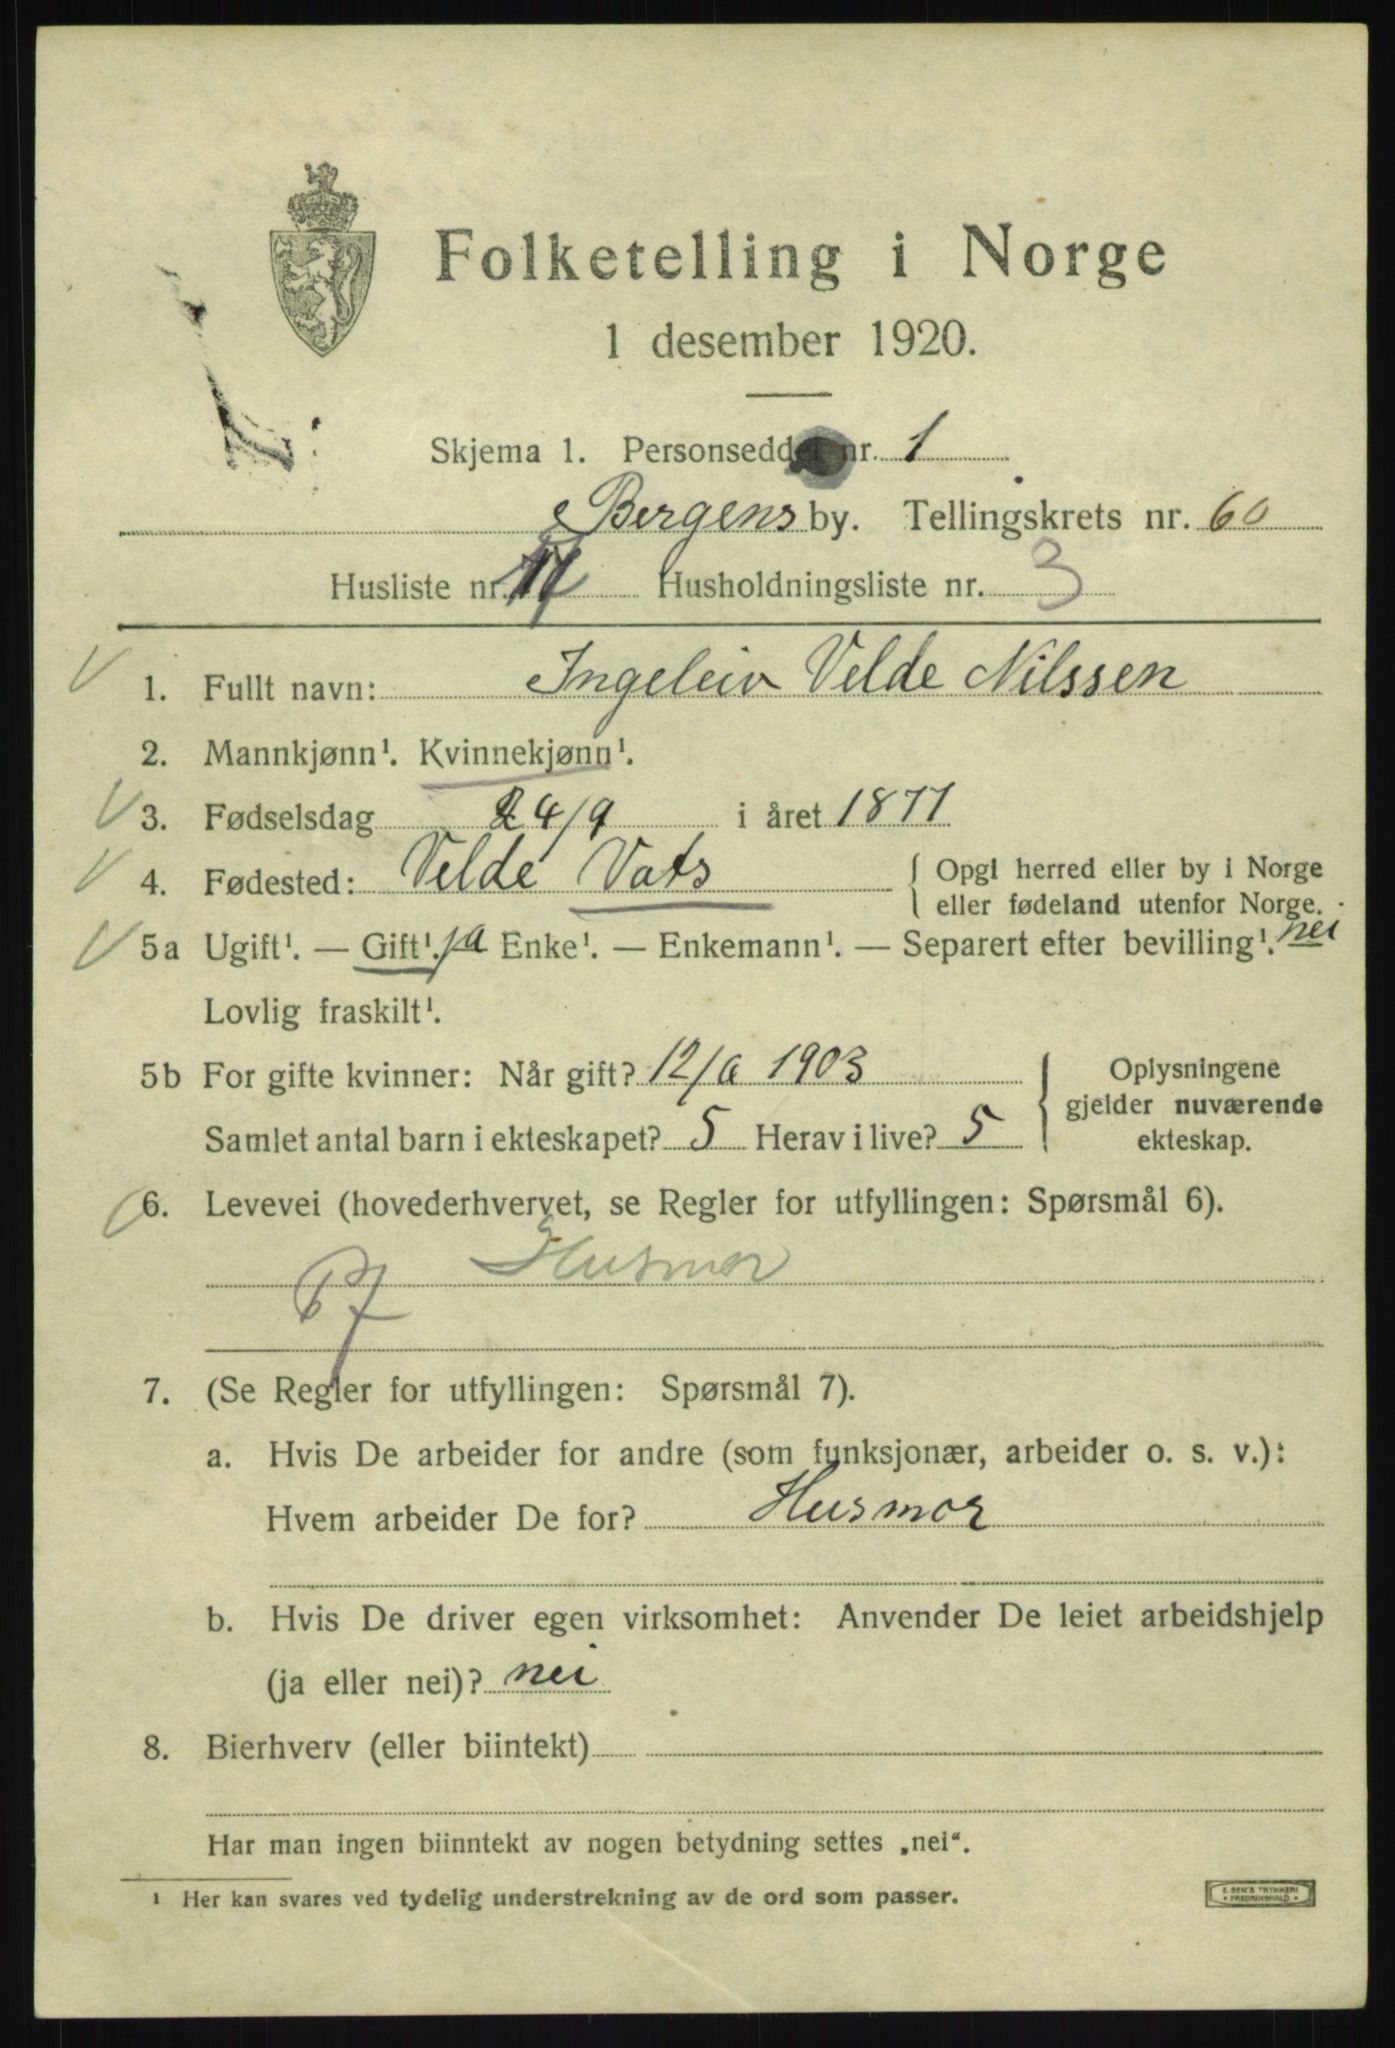 Folketelling i Norge
1 desember 1920.
Skjema 1. Personseddel nr. 1
Bergens by. Tellingskrets nr. 60
Husliste nr. Husholdningsliste nr. 3
1. Fullt navn: Ingeleiv Velde Nilssen
2. Mannkjønn¹. Kvinnekjønn¹.
3. Fødselsdag 24/9 i året 1877
4. Fødested: Velde Vats { Opgi herred eller by i Norge
eller fødeland utenfor Norge.
5a Ugift¹. — Gift¹. ja Enke¹. — Enkemann¹. — Separert efter bevilling¹. nei
Lovlig fraskilt¹.
5b For gifte kvinner: Når gift? 1903 { Oplysningene
gjelder nuværende
Samlet antal barn i ekteskapet? 5 Herav i live? 5 ekteskap.
6. Levevei (hovederhvervet, se Regler for utfyllingen: Spørsmål 6).
Husmor
7. (Se Regler for utfyllingen: Spørsmål 7).
a. Hvis De arbeider for andre (som funksjonær, arbeider o. s. v.):
Hvem arbeider De for? Husmor
b. Hvis De driver egen virksomhet: Anvender De leiet arbeidshjelp
(ja eller nei)? nei
8. Bierhverv (eller biintekt)
Har man ingen biinntekt av nogen betydning settes „nei“.
¹ Her kan svares ved tydelig understrekning av de ord som passer.
E. SEM'S TRYKKERI
FREDRIKSHALD